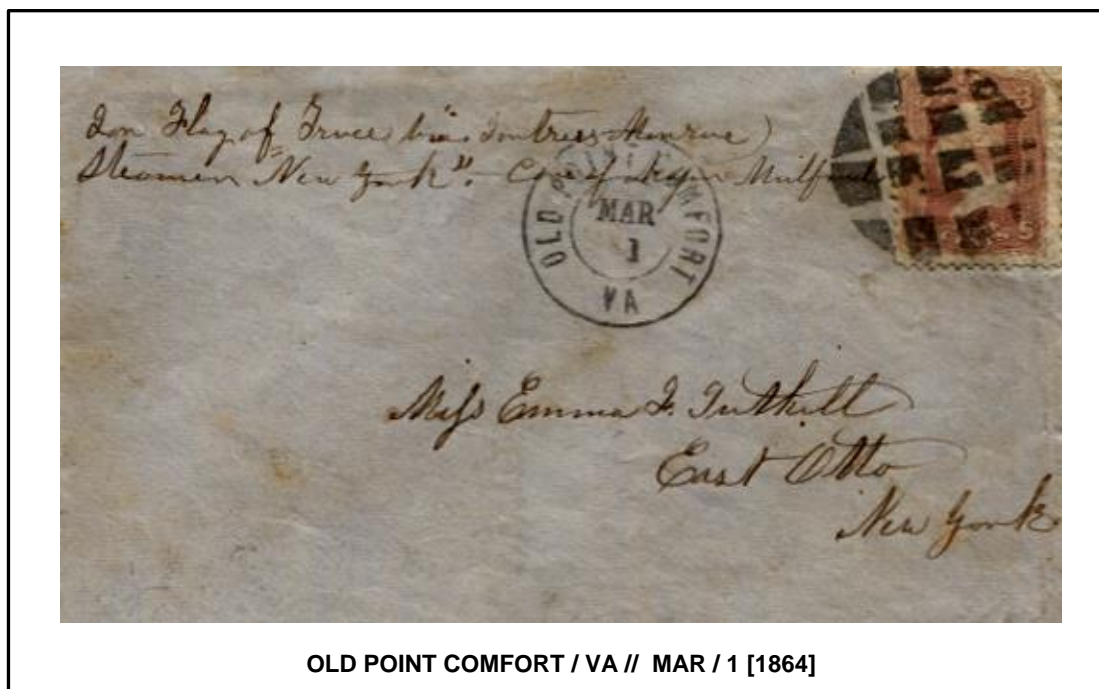 Flag of Truce via Fortress Monroe
Steamer New York". Care of Major Mulford
OLD POINT COMFORT
MAR
1
VA
Miss Emma F. Tuthill
East Otto
New York
OLD POINT COMFORT / VA // MAR / 1 [1864]